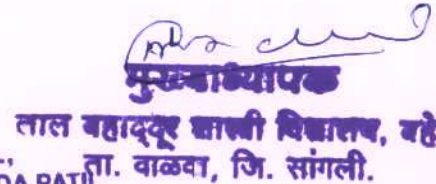 मुख्याध्यापक
लाल बहाद्दूर शास्त्री विद्यालय, बहे
ता. वाळवा, जि. सांगली.
DA PATIL